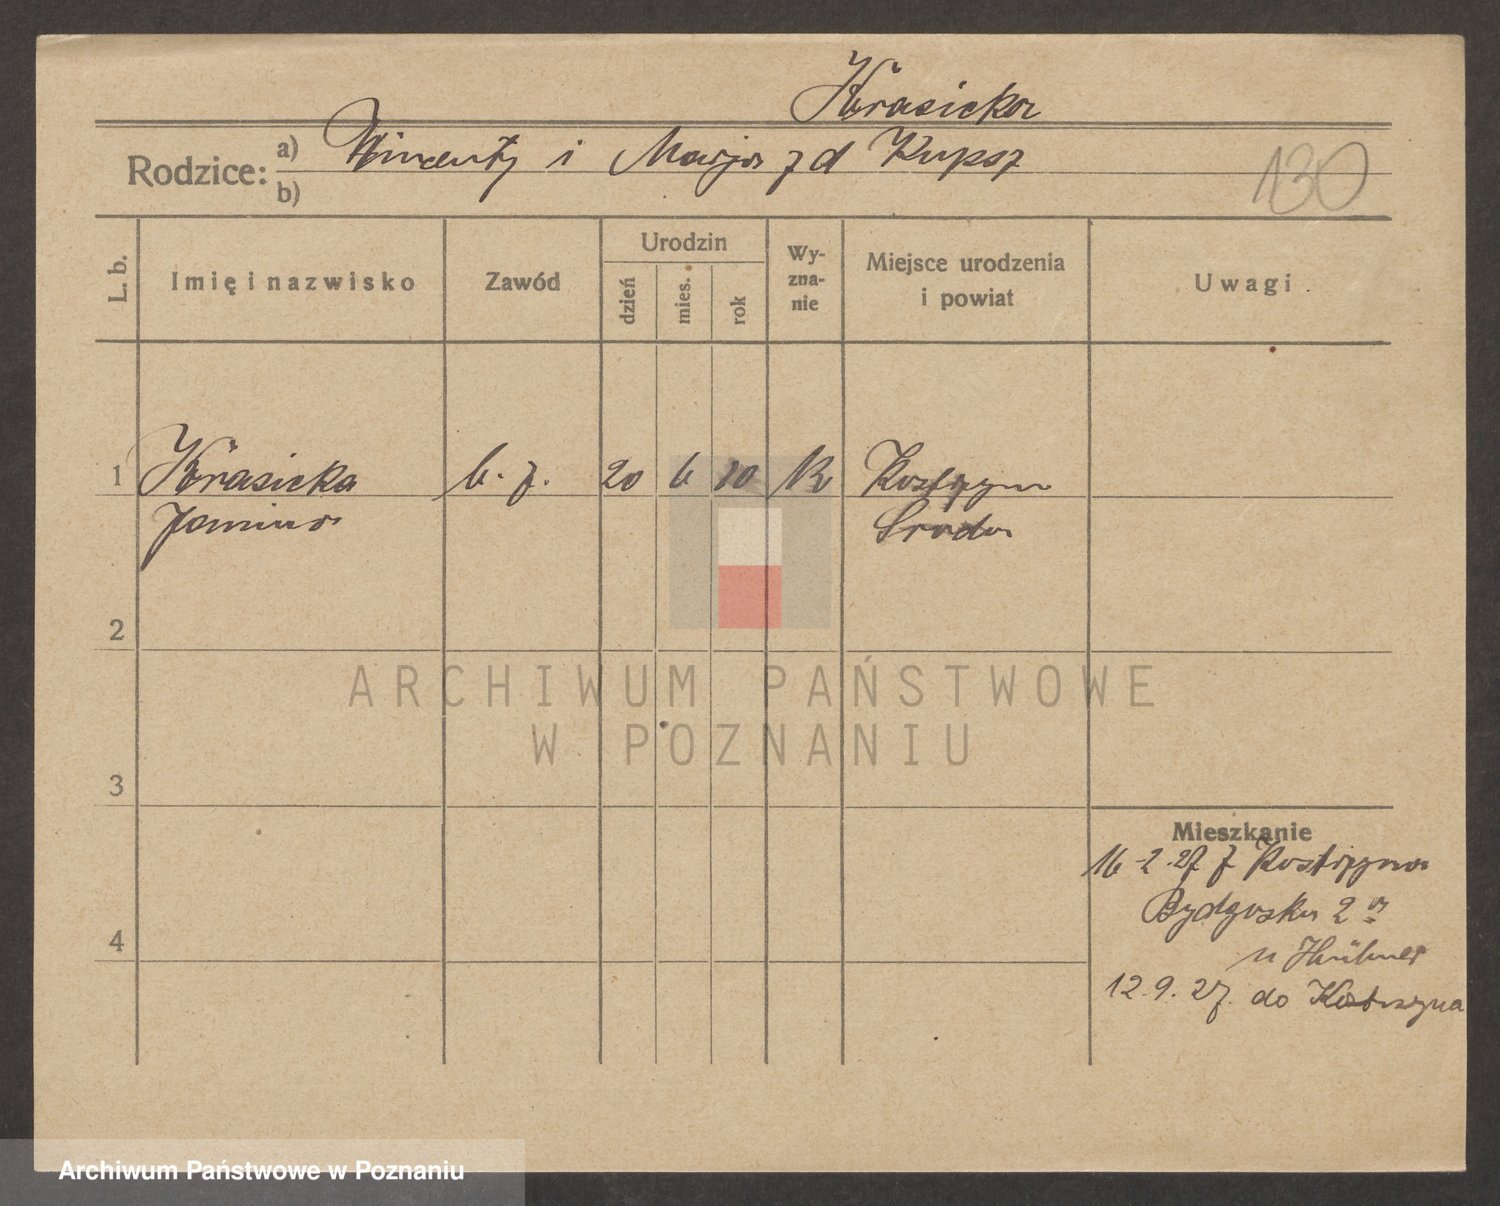 Krasicka
Rodzice: a) Wincenty i Marja z d Kupsz
b)
130
L. b.
Imię i nazwisko
Zawód
Urodzin
dzień
mies.
rok
Wy-
zna-
nie
Miejsce urodzenia
i powiat
Uwagi
1 Krasicka b. z. 20 6 10 Kostrzyn
Janina Środa
2
ARCHIWUM PAŃSTWOWE
W POZNANIU
3
Mieszkanie
16-2-27 z Kostrzyna
Bydgoska 2
4
u Hübner
12.9.27. do Kostrzyna
Archiwum Państwowe w Poznaniu